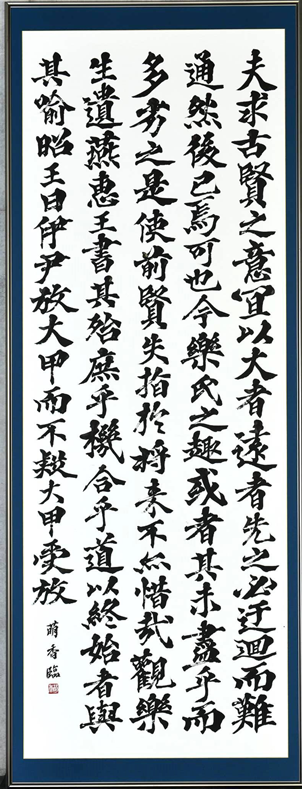 夫求古賢之意宜以大者遠者先之必迂迴而難
通然後已焉可也今樂氏之趣或者其未盡乎而
多劣之是使前賢失指於將来不亦惜哉觀樂
生遺燕惠王書其殆庶乎機合乎道以終始者與
其喻昭王曰伊尹放大甲而不疑大甲受放
萌香臨